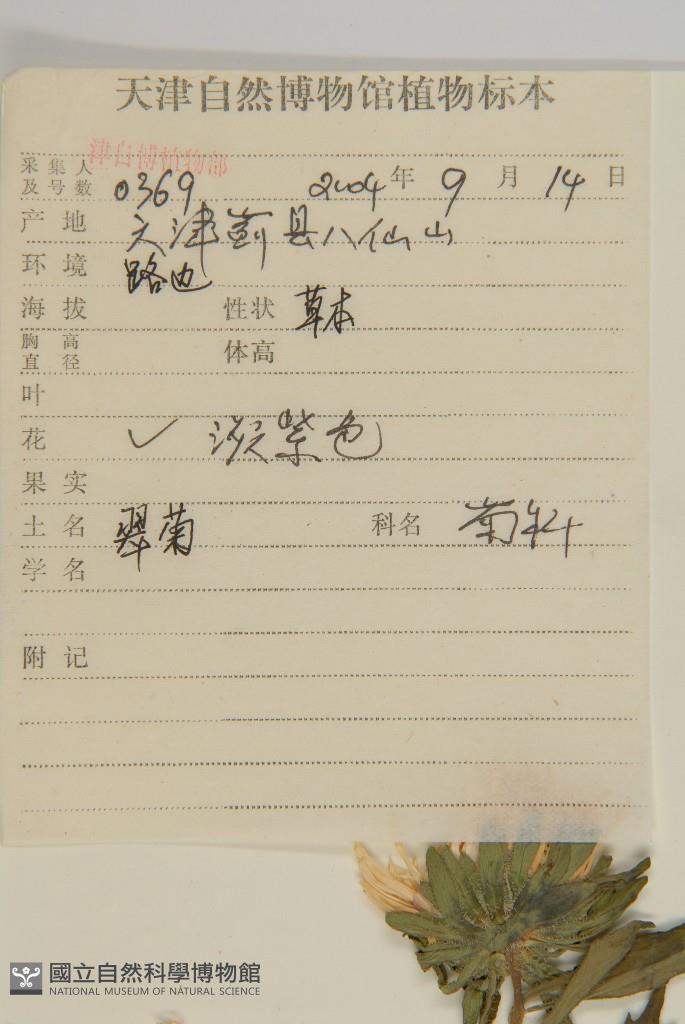 天津自然博物馆植物标本
津自博植物部
采集人及号数 0369 2004年9月14日
产地 天津蓟县八仙山
环境 路边
海拔 性状 草本
胸高直径 体高
叶
花 ✓ 淡紫色
果实
土名 翠菊 科名 菊科
学名
附记
國立自然科學博物館
NATIONAL MUSEUM OF NATURAL SCIENCE